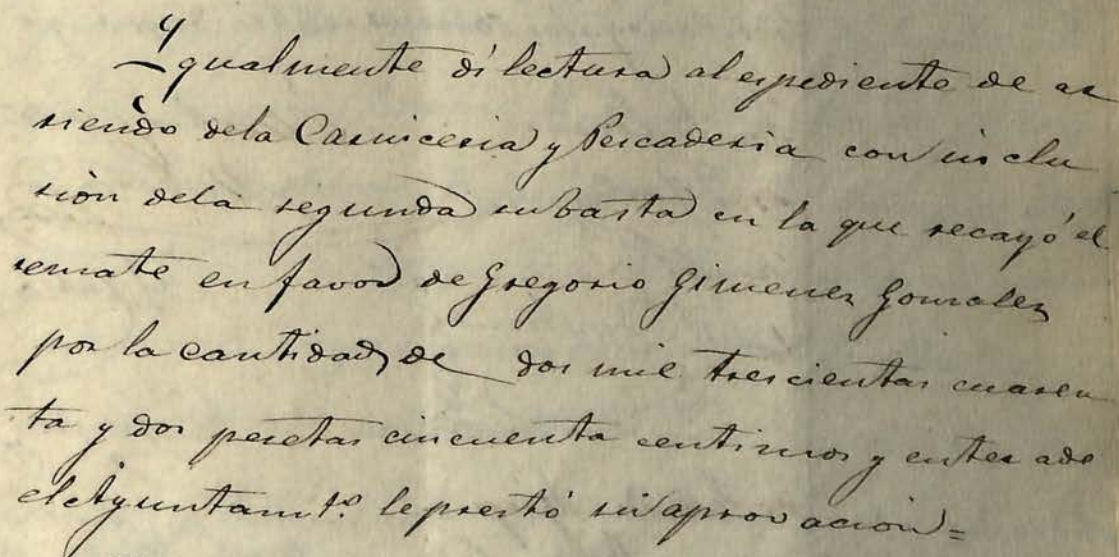 Ygualmente di lectura al espediente de ar
riendo dela Carniceria y Pescaderia con inclu
sión dela segunda subasta en la que recayó el
remate en favor de Gregorio Gimenez Gonzalez
por la cantidad de dos mil trescientas cuaren
ta y dos pesetas cincuenta centimos y enterado
el Ayuntamto. le prestó su aprovacion=